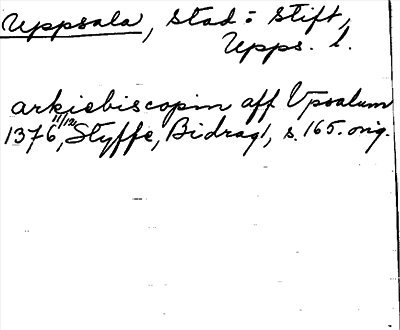 Uppsala, stad o stift,
Upps. l.
arkiebiscopin aff Vpsalum
1376 11/12, Styffe, Bidrag 1, s. 165. orig.